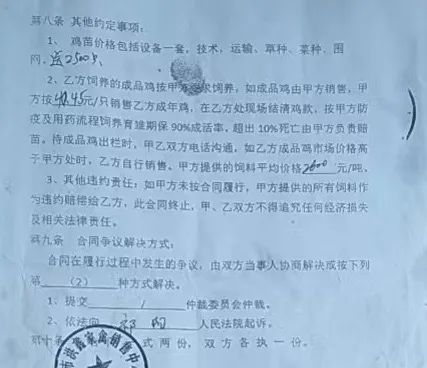 第八条 其他约定事项:
1、鸡苗价格包括设备一套,技术,运输、草种、菜种、围
网。送2500只
2、乙方饲养的成品鸡按甲方 求饲养,如成品鸡由甲方销售,甲
方按 45元/只销售乙方成年鸡,在乙方处现场结清鸡款,按甲方防
疫及用药流程饲养育雏期保90%成活率,超出10%死亡由甲方负责赔
苗。待成品鸡出栏时,甲乙双方电话沟通,如乙方成品鸡市场价格高
于甲方处时,乙方自行销售。甲方提供的饲料平均价格2600元/吨。
3、其他违约责任:如甲方未按合同履行,甲方提供的所有饲料作
为违约赔偿给乙方,此合同终止,甲、乙双方不得追究任何经济损失
及相关法律责任。
第九条 合同争议解决方式:
合同在履行过程中发生的争议,由双方当事人协商解决或按下列
第 (2) 种方式解决。
1、提交 / 仲裁委员会仲裁。
2、依法向 人民法院起诉。
第十条 式两份,双方各执一份。
市洪鑫家禽销售中